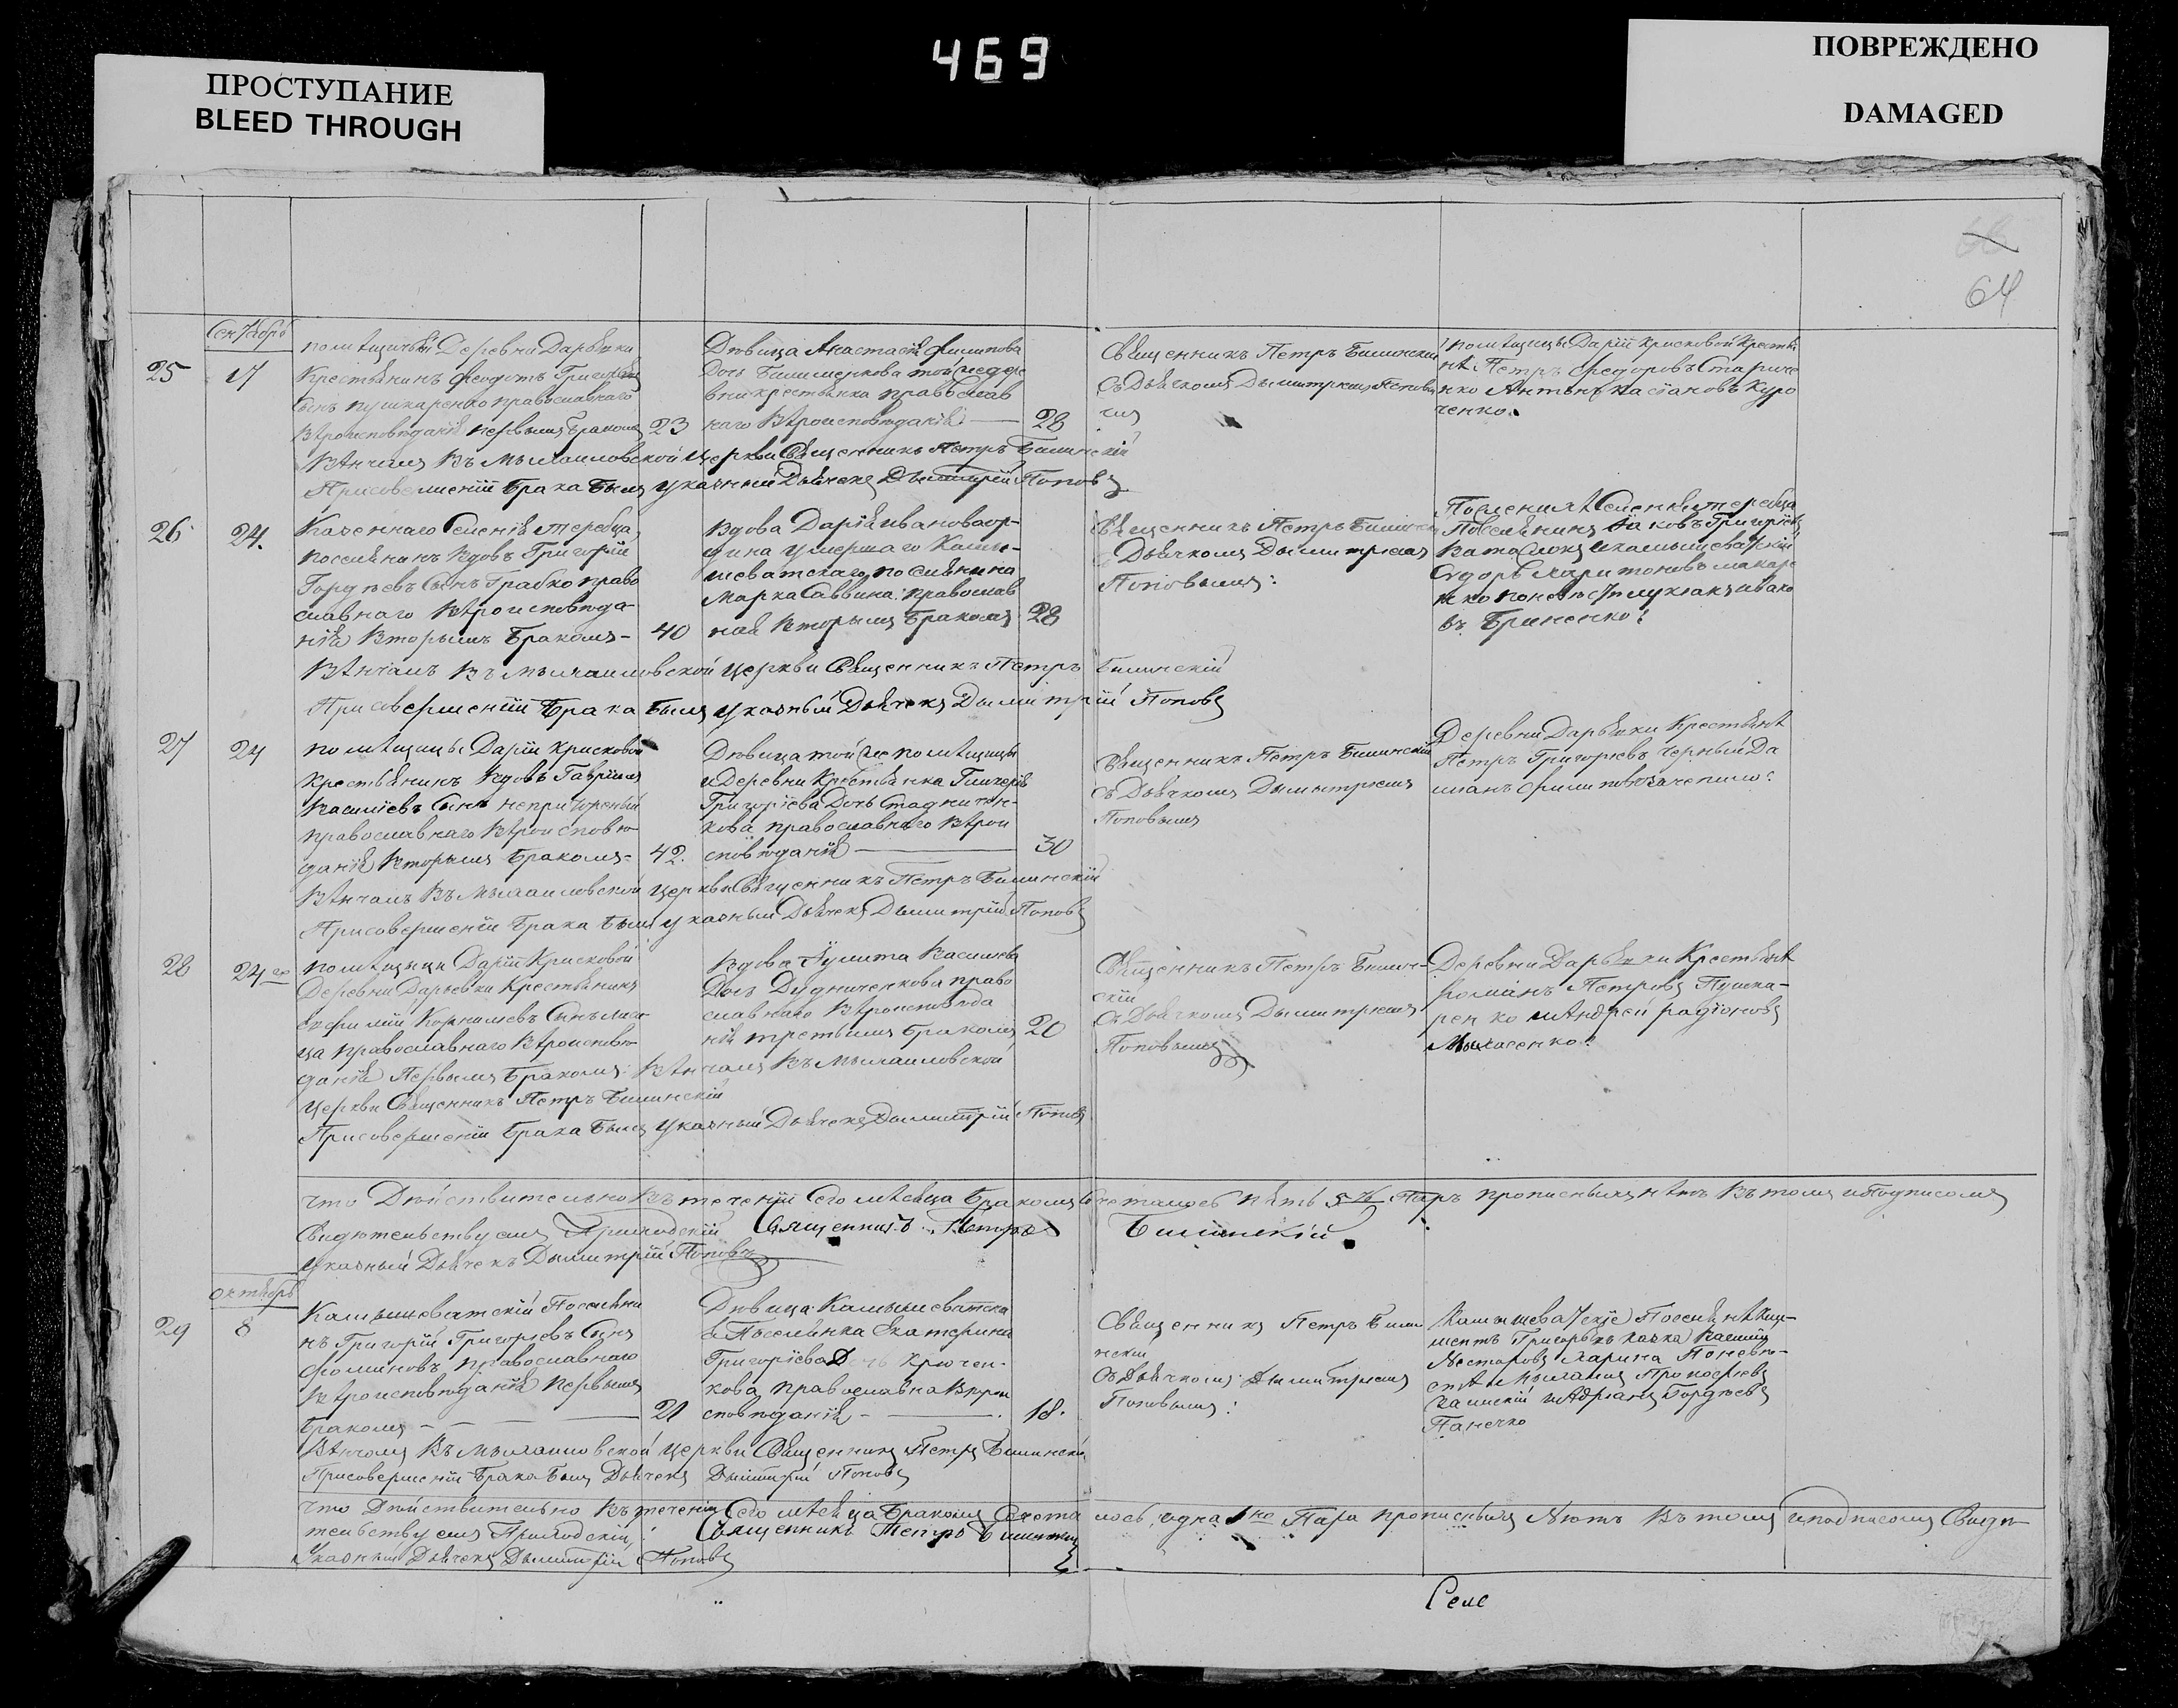 469
ПРОСТУПАНИЕ
BLEED THROUGH
ПОВРЕЖДЕНО
DAMAGED
64
Сентябрь
25
17
помѣщичьей Деревни Дарьевки
Крестьянинъ Феодотъ Григорьевъ
Сынъ пушкаренко православнаго
Вѣроисповѣданія первымъ бракомъ
23
Дѣвица Анастасія Филипова
Дочь той же дере
вни крестьянка православ
наго Вѣроисповѣданія
28
Священникъ Петръ Билинскій
Съ Дьячкомъ Дымитріемъ Поповы
мъ
помѣщицы Даріи Крисковой Крестья
нѣ Петръ Федоровъ Стариче
нко Антонъ Касіановъ Куро
ченко.
Вѣнчалъ Въ Мыхаиловской Церкви Священникъ Петръ Билинскій
При совершеніи брака былъ указный Дьячекъ Дымитрій Поповъ
26
24.
Казеннаго Селенія Теребца,
поселянинъ Вдовъ Григорій
Гордѣевъ Сынъ Грабко право
славнаго Вѣроисповѣда
нія Вторымъ бракомъ
40
Вдова Дарія Иванова ор-
дина умершаго Камы-
шеватскаго поселянина
Марка Саввина православ
ная Вторымъ бракомъ
28
Священникъ Петръ Билинскі
Съ Дьячкомъ Дымитріемъ
Поповымъ:
Поселянинъ Яковъ Григоріевъ
Сидоръ Харитоновъ макаре
нко
Бриненко:
Вѣнчалъ Въ мыхаиловской Церкви Священникъ Петръ Билинскій
При совершеніи брака былъ указный Дьячекъ Дымитрій Поповъ
27
24
помѣщицы Даріи Крисковой
Крестьянинъ Вдовъ Гавріилъ
Василіевъ Сынъ
православнаго Вѣроисповѣ
данія Вторымъ бракомъ
42.
Дѣвица той же помѣщицы
и Деревни Крестьянка Гликерія
Григоріева Дочь Стаднич
кова православнаго Вѣрои
сповѣданія
30
Священникъ Петръ Билинскій
Съ Дьячкомъ Дымитріемъ
Поповымъ
Деревни Дарьевки Крестьянѣ
Петръ Григорьевъ Черный Да
міанъ Филиповъ Зачепило:
Вѣнчалъ Въ Мыхаиловской церкви Священникъ Петръ Билинскій
При совершеніи брака былъ указный Дьячекъ Дымитрій Поповъ
28
24
помѣщицы Даріи Крисковой
Деревни Дарьевки Крестьянинъ
Ефимій Корнилевъ Сынъ Лиси
ца православнаго Вѣроисповѣ
данія Первымъ бракомъ:
Вдова Іулита Василева
Дочь Дудниченкова право
славнаго Вѣроисповѣда
нія третьимъ бракомъ
20
Священникъ Петръ Билин-
скій
Съ Дьячкомъ Дымитріемъ
Поповымъ
Деревни Дарьевки Крестьянѣ
Романъ Петровъ Пушка-
ренко и Андрей Радіоновъ
Вѣнчалъ Въ Мыхаиловской
Церкви Священникъ Петръ Билинскій
При совершеніи брака былъ указный Дьячекъ Дымитрій Поповъ
что Дѣйствительно Въ теченіи Сего мѣсяца бракомъ Сочеталось пять 5 Паръ прописныхъ нѣтъ Въ томъ и подписомъ
Свидѣтельствуемъ Приходскій Священникъ Петръ Билинскій
Указный Дьячекъ Дымитрій Поповъ
Октябрь
29
8
Камышеватскій Поселяни
нъ Григорій Григорьевъ Сынъ
Фоминовъ, православнаго
Вѣроисповѣданія Первымъ
бракомъ
21
Дѣвица Камышеватска
я Поселянка Екатерина
Григоріева Дочь Крючен-
кова православна Вѣрои
сповѣданія
18.
Священникъ Петръ Били
нскій
Съ Дьячкомъ Дымитріемъ
Поповымъ:
Камышеватскіе Поселянѣ Кли-
ментъ
Несторовъ Харина
Мыхаилъ Прокофіевъ
и Адріанъ Гордѣевъ
Панечко
Вѣнчалъ Въ мыхаиловской церкви Священникъ Петръ Билинскій
При совершеніи брака былъ Дьячекъ Дымитрій Поповъ
что Дѣйствительно Въ теченіи Сего мѣсяца бракомъ Сочета лось одна 1 на Пара прописныхъ Нѣтъ Въ томъ и подписомъ Свидѣ
тельствуемъ Приходскій Священникъ Петръ Билинскій
Указный Дьячекъ Дымитрій Поповъ
Селе